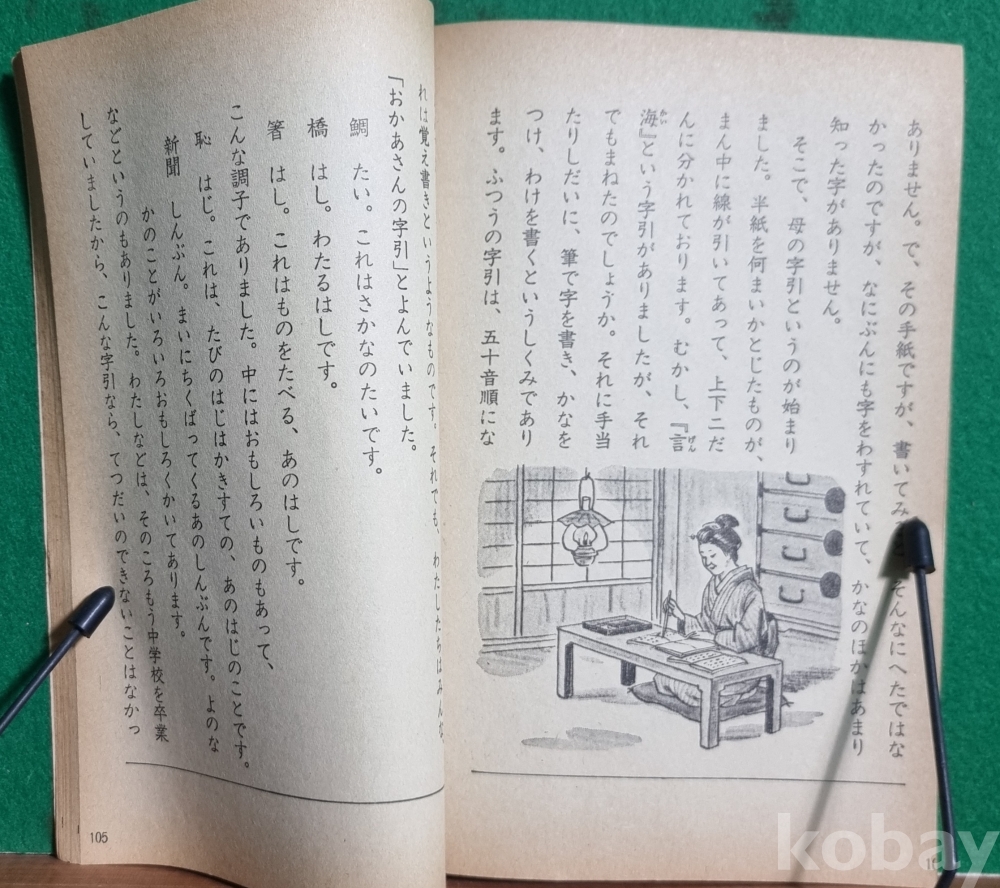 ありません。で、その手紙ですが、書いてみ そんなにへたではな
かったのですが、なにぶんにも字をわすれていて、かなのほかはあまり
知った字がありません。
そこで、母の字引というのが始まり
ました。半紙を何まいかとじたものが、
まん中に線が引いてあって、上下二だ
んに分かれております。むかし、『言
げん
海』という字引がありましたが、それ
かい
でもまねたのでしょうか。それに手当
たりしだいに、筆で字を書き、かなを
つけ、わけを書くというしくみであり
ます。ふつうの字引は、五十音順にな
れは覚え書きというようなものです。それでも、わたしたちはみんな
「おかあさんの字引」とよんでいました。
鯛 たい。これはさかなのたいです。
橋 はし。わたるはしです。
箸 はし。これはものをたべる、あのはしです。
こんな調子でありました。中にはおもしろいものもあって、
恥 はじ。これは、たびのはじはかきすての、あのはじのことです。
新聞 しんぶん。まいにちくばってくるあのしんぶんです。よのな
かのことがいろいろおもしろくかいてあります。
などというのもありました。わたしなどは、そのころもう中学校を卒業
していましたから、こんな字引なら、てつだいのできないことはなかっ
105
kobay